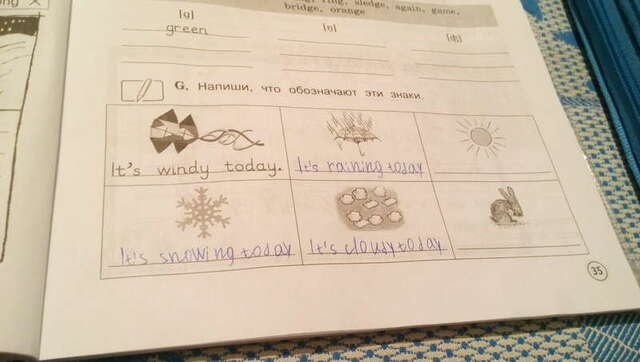 ring, sledge, again, game,
bridge, orange
[g]
[ŋ]
[ʤ]
green
G. Напиши, что обозначают эти знаки.
It's windy today.
It's raining today
It's snowing today
It's cloudy today
35